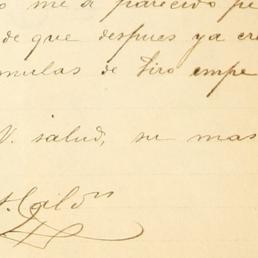 me a parecido pe
de que despues ya cre
mulas de tiro empe
V. salud, su mas